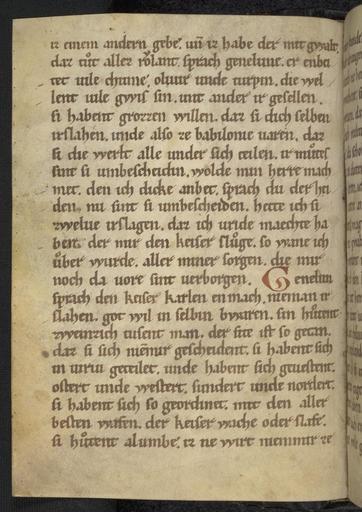 ir einem andern gebe. uñ ir habe der mit gwalt.
daz tůt allez rǒlant. sprach genelune. er enbu
tet uile chume. oliuir unde turpin. die wel
lent uile gwis sin. unt ander ir gesellen.
si habent grozzen willen. daz si dich selben
irslahen. unde also ze babilonie uaren. daz
si die werlt alle under sich teilen. ir můtes
sint si umbescheidin. wolde min herre mach
met. den ich dicke anbet. sprach du der hei
den. nu sint si umbescheiden. hete ich si
zwelue irslagen. daz ich uride maechte ha
ben. der mir den keiser slůge. so wane ich
ůber wurde. aller miner sorgen. die mir
noch da uore sint uerborgen. Genelun
sprach den keiser karlen en mach. nieman ir
slahen. got wil in selbin bewaren. sin hůtent
zweinzich tusent man. der site ist so getan.
daz si sich niemir gescheident. si habent sich
in uiriu geteilet. unde habent sich geuestent.
ostert unde westert. sundert unde nordert.
si habent sich so geordinet. mit den aller
besten wafen. der keiser wache oder slafe.
si hůtent al umbe. ez ne wirt niemmir ze